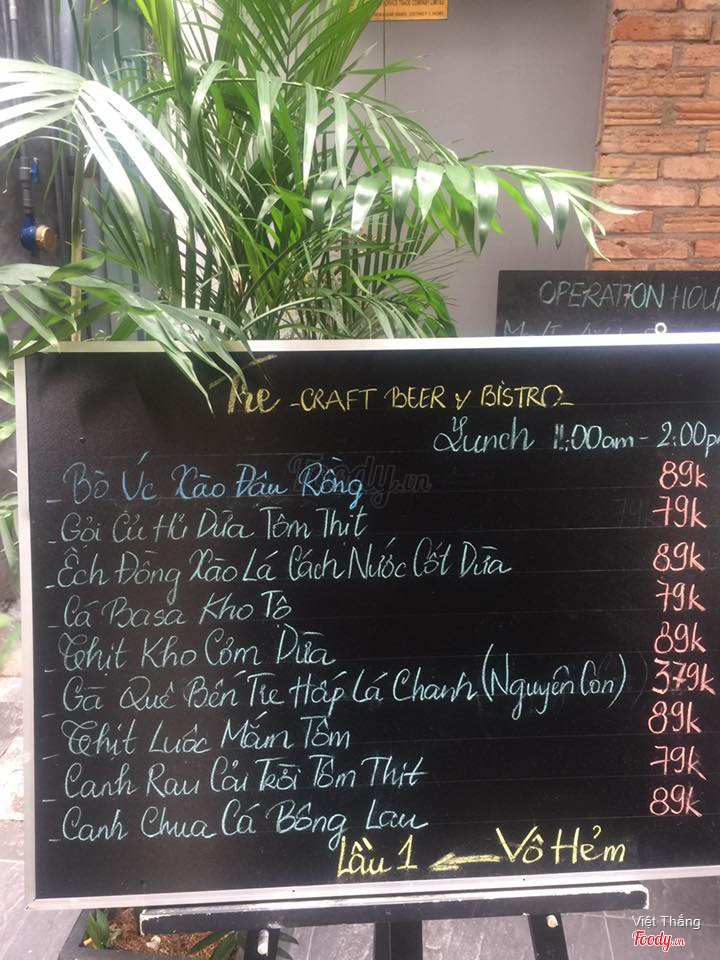 OPERATION HOU
Tre - CRAFT BEER & BISTRO -
Lunch 11:00am - 2:00p
- Bò Úc Xào Đậu Rồng 89k
- Gỏi Củ Hủ Dừa Tôm Thịt 79k
- Ếch Đồng Xào Lá Cách Nước Cốt Dừa 89k
- Cá Basa Kho Tộ 79k
- Thịt Kho Cơm Dừa 89k
- Gà Quê Bến Tre Hấp Lá Chanh (Nguyên Con) 379k
- Thịt Luộc Mắm Tôm 89k
- Canh Rau Cải Trời Tôm Thịt 79k
- Canh Chua Cá Bông Lau 89k
Lầu 1 ← Vô Hẻm
Foody.vn
Việt Thắng
Foody.vn